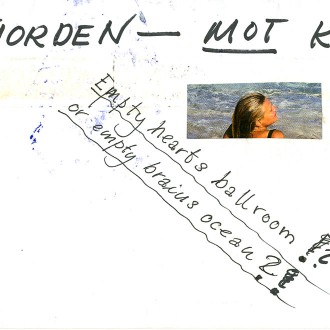 JORDEN — MOT K
Empty hearts ballroom !?
or empty brains ocean ?!